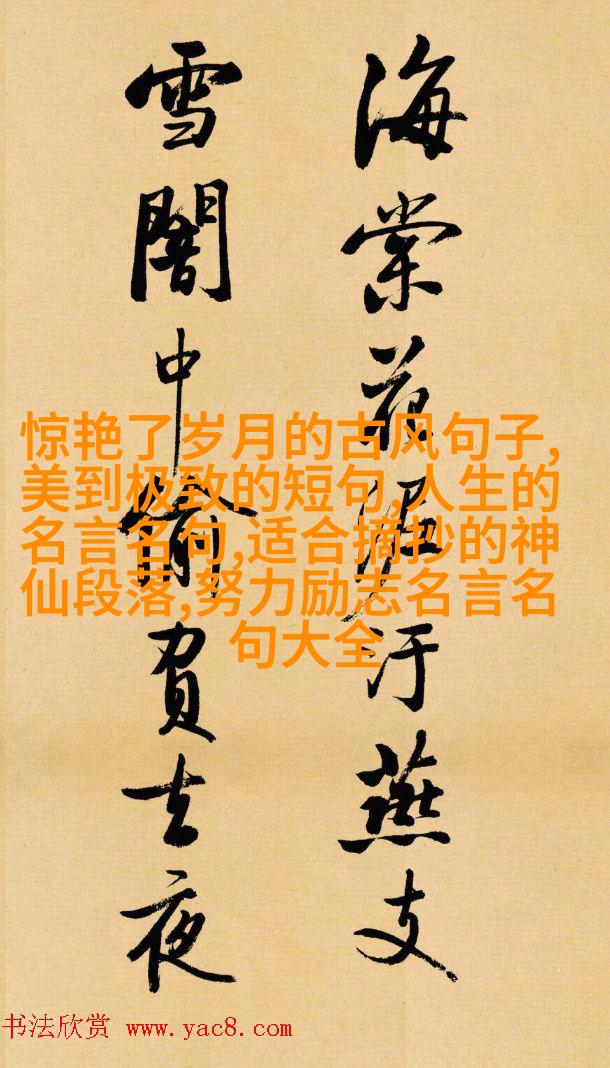 海棠花泥汙燕支
雪闇中偷負去夜
惊艳了岁月的古风句子,
美到极致的短句,人生的
名言名句,适合摘抄的神
仙段落,努力励志名言名
句大全
书法欣赏 www.yac8.com